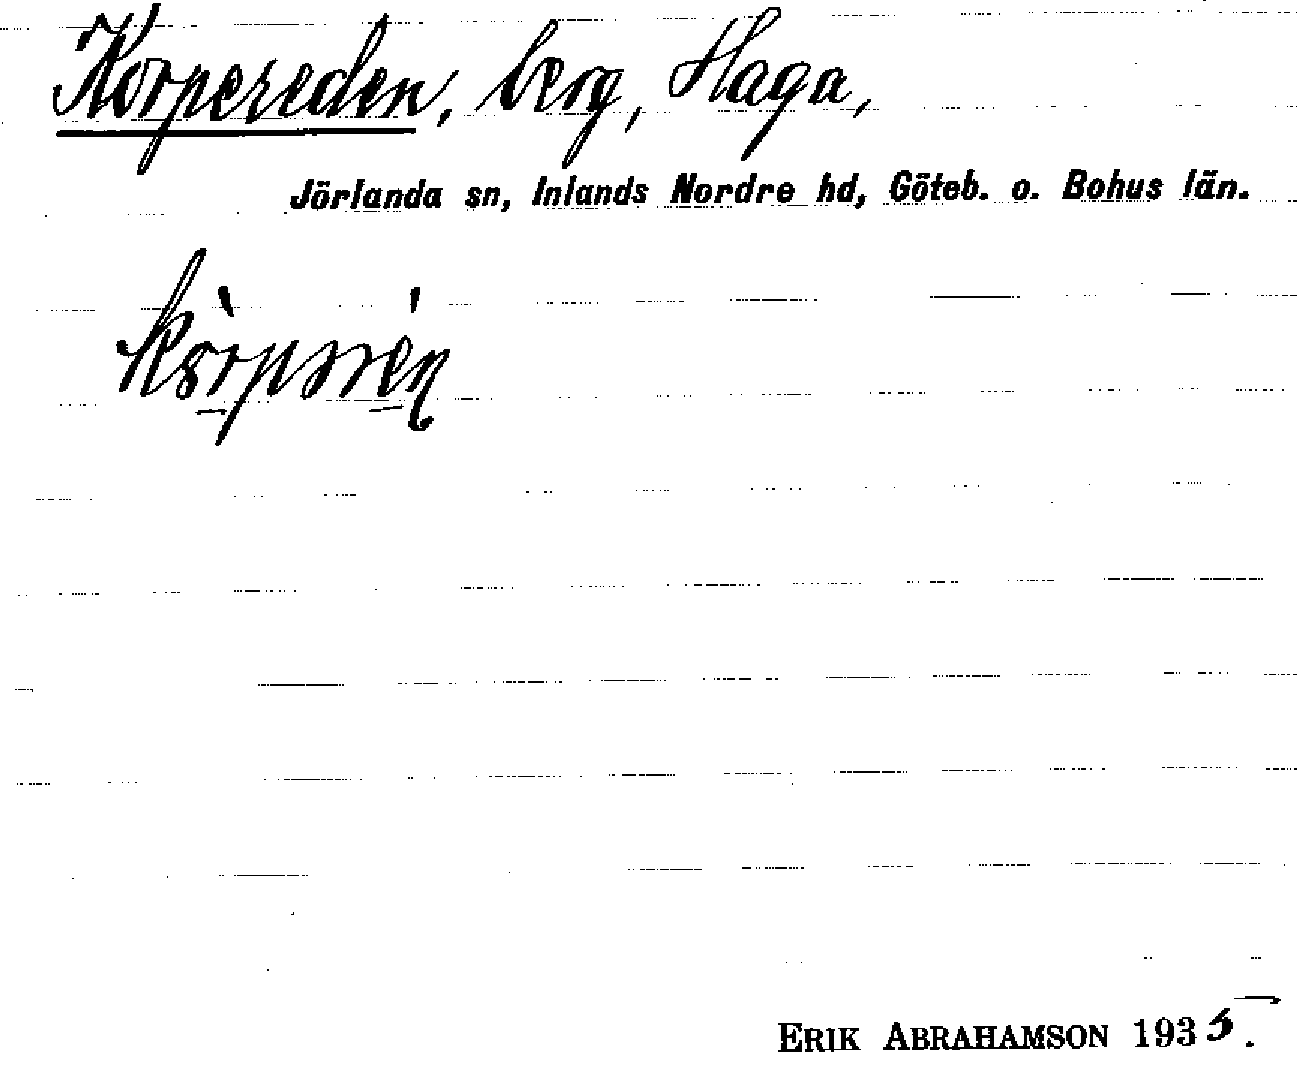 Korpereden, berg, Haga,
Jörlanda sn, Inlands Nordre hd, Göteb. o. Bohus län.
ERIK ABRAHAMSON 1935.